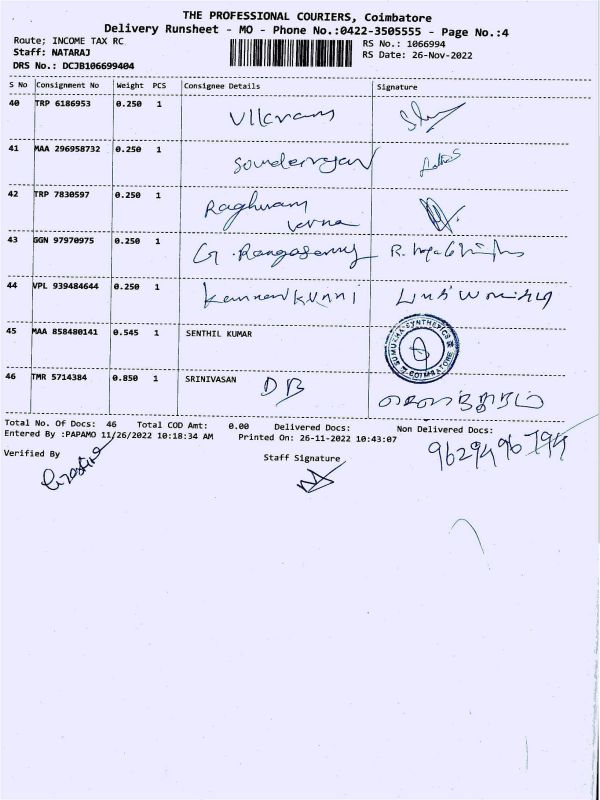 THE PROFESSIONAL COURIERS, Coimbatore
Delivery Runsheet - MO - Phone No.:0422-3505555 - Page No.:4
Route; INCOME TAX RC RS No.: 1066994
Staff: NATARAJ RS Date: 26-Nov-2022
DRS No.: DCJB106699404
S No Consignment No Weight PCS Consignee Details Signature
40 TRP 6186953 0.250 1 Vikram
41 MAA 296958732 0.250 1 Sounderrajan
42 TRP 7830597 0.250 1 Raghuram
varma
43 GGN 97970975 0.250 1 G. Rangasamy
44 VPL 939484644 0.250 1 kannankunni
45 MAA 858480141 0.545 1 SENTHIL KUMAR
COIMBATORE
46 TMR 5714384 0.850 1 SRINIVASAN DB
Total No. Of Docs: 46 Total COD Amt: 0.00 Delivered Docs: Non Delivered Docs:
Entered By :PAPAMO 11/26/2022 10:18:34 AM Printed On: 26-11-2022 10:43:07
Verified By Staff Signature